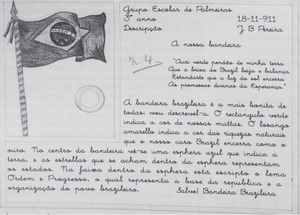 Grupo Escolar de Palmeiras
3º anno 18-11-911
Descripção J B Pereira
A nossa bandeira
"Auri verde pendão de minha terra
Que a brisa do Brazil beija e balança
Estandarte que a luz do sol encerra
As promessas divinas da Esperança."
A bandeira brazileira é a mais bonita de
todas: vou descrevel-a. O rectangulo verde
indica a cor de nossas mattas. O losango
amarello indica a cor das riquezas naturaes
que o nosso caro Brazil encerra como o
ouro. No centro da bandeira vê-se uma esphera azul que indica a
terra, e as estrellas que se acham dentro da esphera representam
os estados. Na faixa dentro da esphera está escripto o lema
Ordem e Progresso, o qual representa a base da republica e a
organização do povo brazileiro. Salve! Bandeira Brazileira